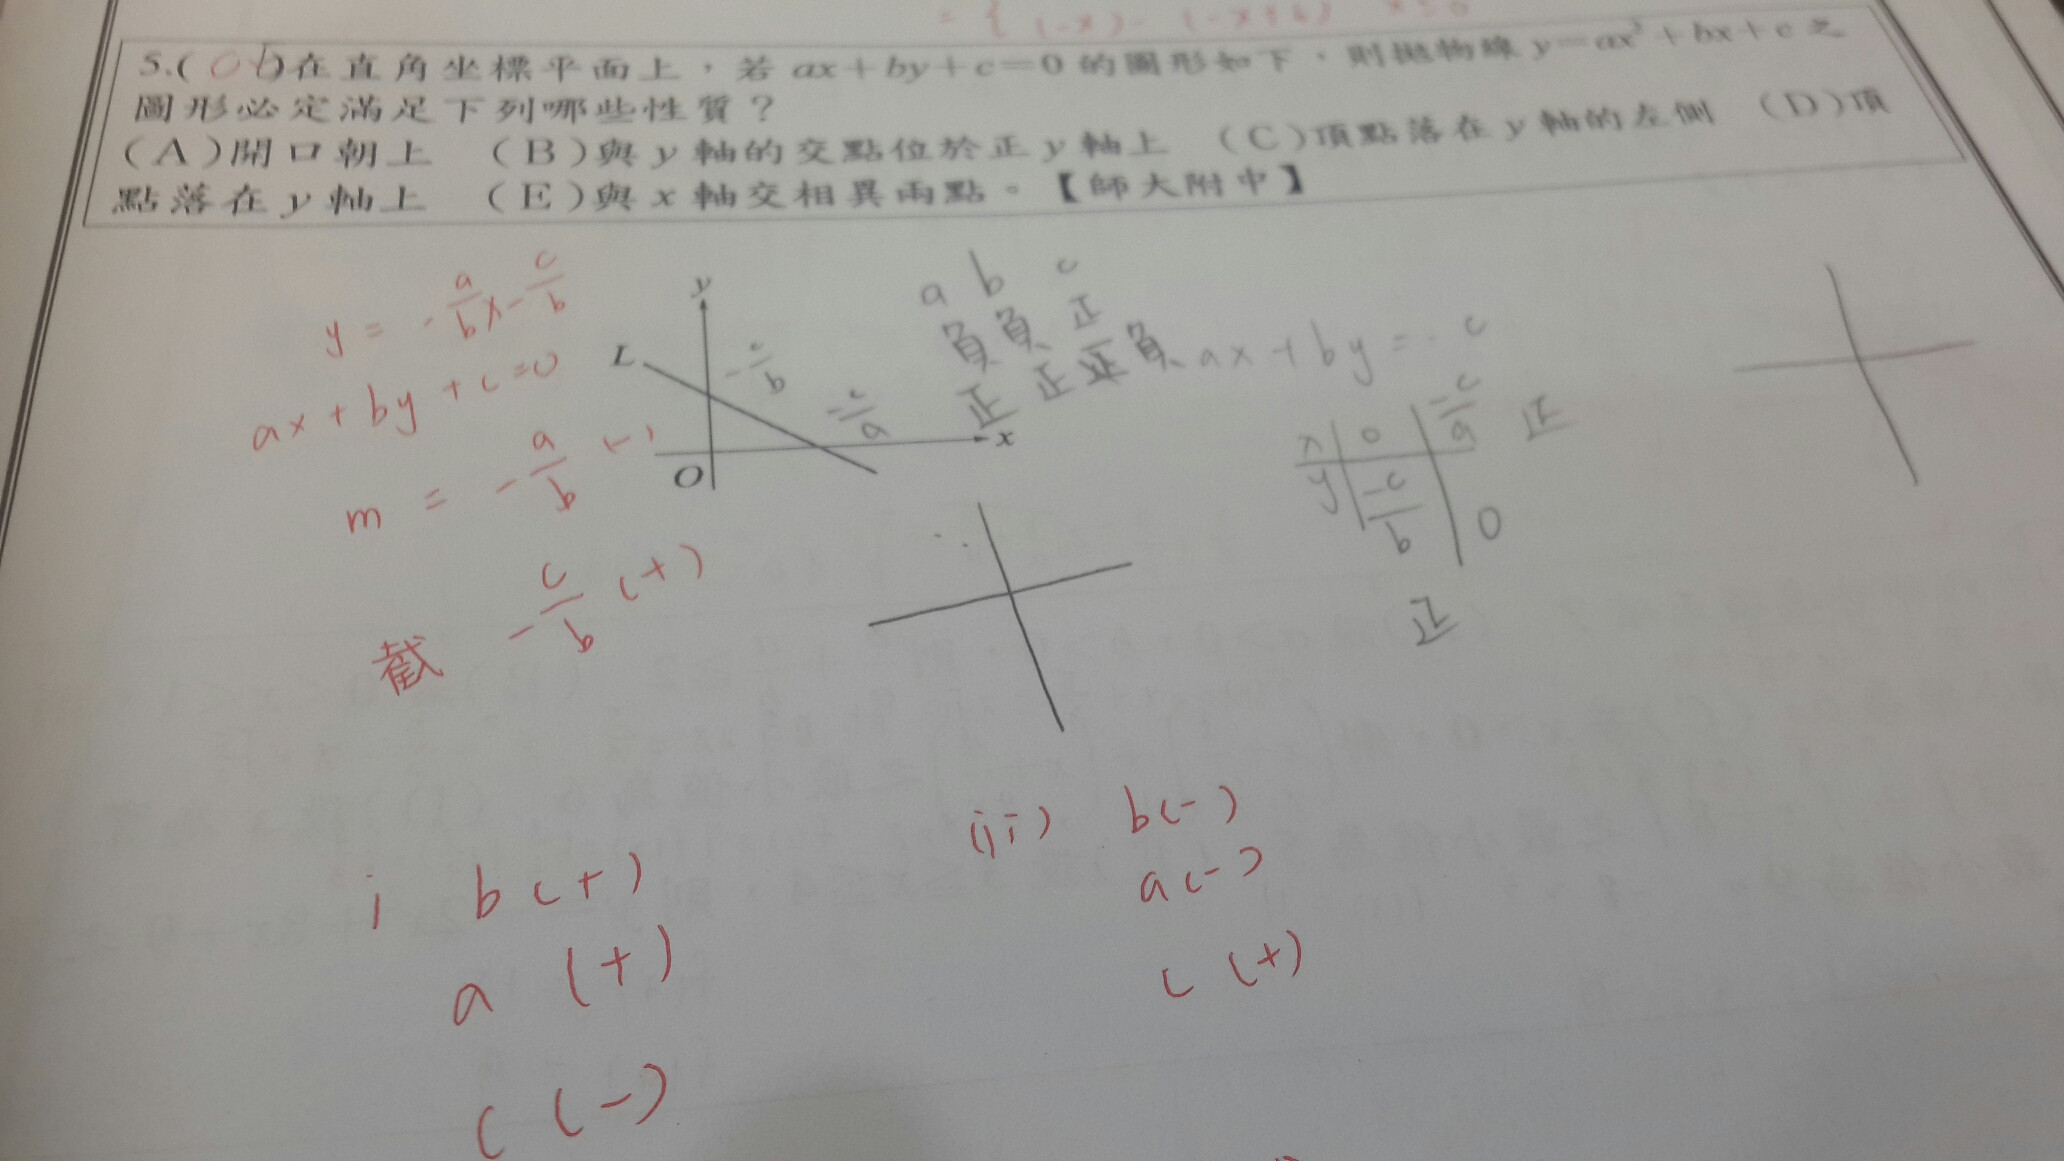 = { (-x) - (-x+6) x≤0
5.( )在直角坐標平面上，若 ax+by+c=0 的圖形如下，則拋物線 y=ax²+bx+c 之
圖形必定滿足下列哪些性質？
(A)開口朝上 (B)與 y 軸的交點位於正 y 軸上 (C)頂點落在 y 軸的左側 (D)頂
點落在 y 軸上 (E)與 x 軸交相異兩點。【師大附中】
y = -a/b x - c/b
ax + by + c = 0
m = -a/b (-)
截 -c/b (+)
y
L
-c/b
-c/a
O
x
a b c
負 負 正
正 正 負
ax + by = -c
x 0 -c/a 正
y -c/b 0
正
i b(+)
a (+)
c (-)
(ii) b(-)
a(-)
c (+)